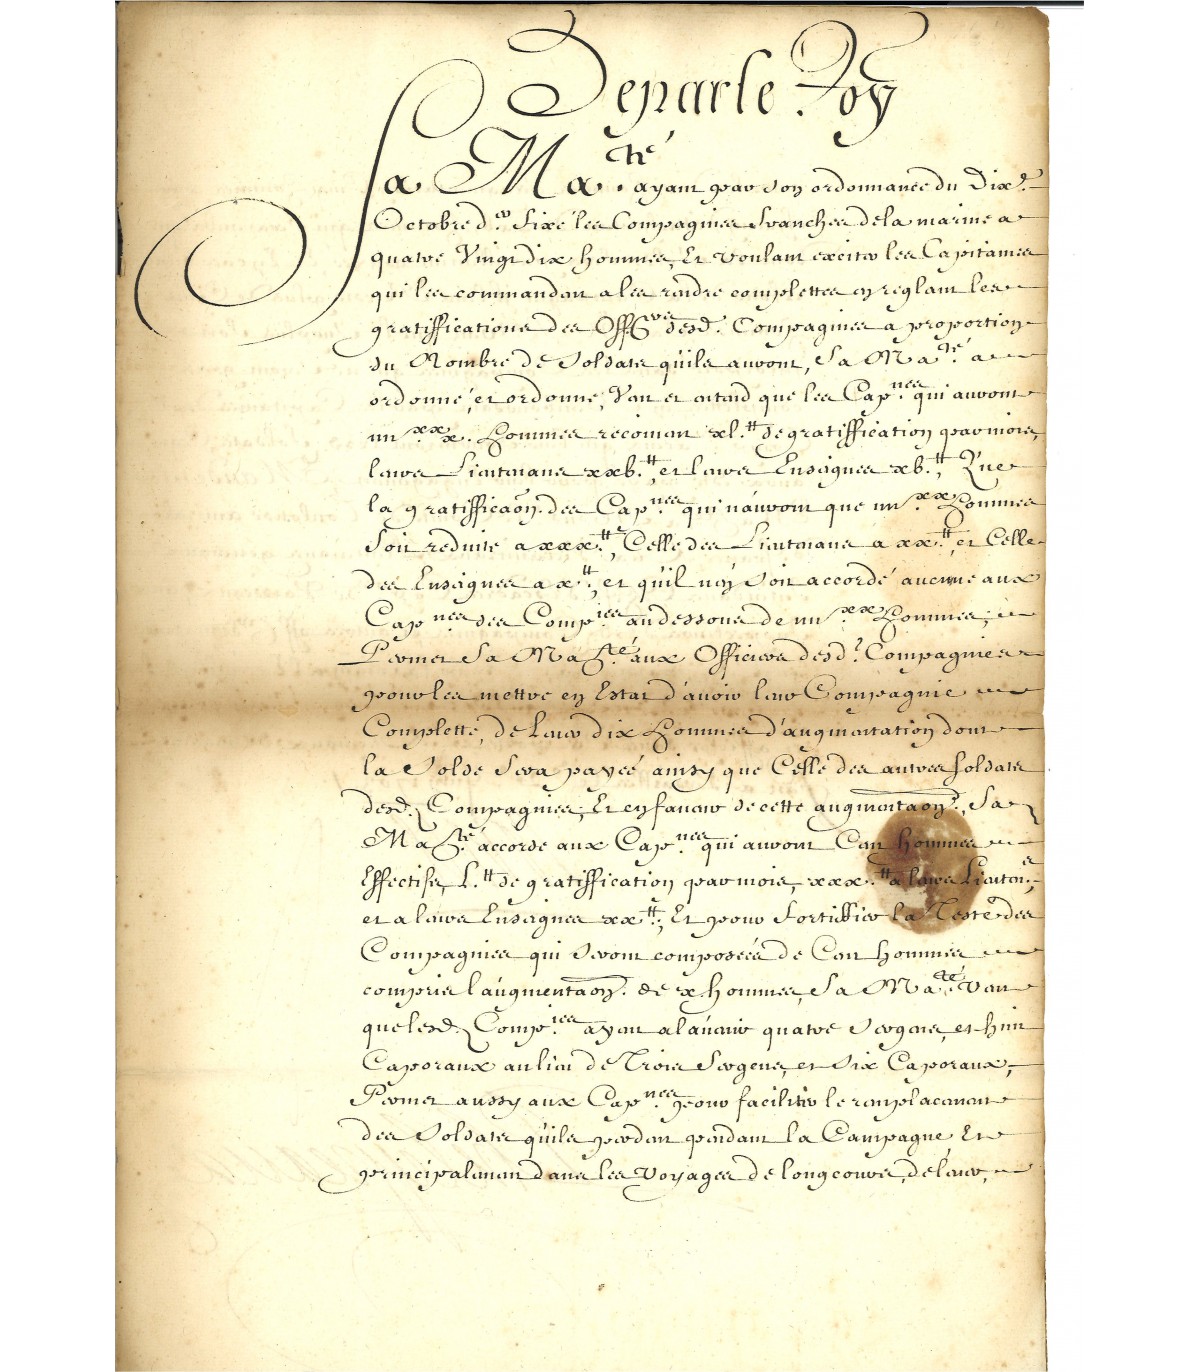 De par le Roy
Sa Ma.té ayant par son ordonnance du Dix.e
Octobre d.er fixé les Compagnies franches de la marine a
quatre Vingt dix hommes, Et voulant exciter les Capitaines
qui les commandent a les rendre complettes en reglant les
gratiffications des Off.ers desd. Compagnies a proportion
du Nombre de Soldats qu'ils auront, Sa Ma.té a
ordonné, et ordonne, Veut et entend que les Cap.nes qui auront
iiii.xx x. hommes recoivent xl.tt de gratiffication par mois,
leurs Lieutenans xxb.tt, et leurs Enseignes xb.tt, Que
la gratifficaõn. des Cap.nes qui n'auront que iiii.xx hommes
soit reduite a xxx.tt, Celle des Lieutenans a xx.tt, et Celle
des Enseignes a x.tt, et qu'il n'en soit accordé aucune aux
Cap.nes des Comp.ies au dessous de iiii.xx hommes,
Permet Sa Ma.té aux Officiers desd. Compagnies
pour les mettre en Estat d'avoir leur Compagnie
Complette, de lever dix hommes d'augmentation dont
la Solde sera payeé ainsy que Celle des autres soldats
desd. Compagnies, Et en faveur de cette augmentaõn., Sa
Ma.té accorde aux Cap.nes qui auront Cent hommes
Effectifs, L.tt de gratiffication par mois, xxx.tt a leurs Lieuten.s,
et a leurs Enseignes xx.tt, Et pour fortiffier la Teste des
Compagnies qui seront composeés de Cent hommes
compris l'augmentaõn. de x. hommes, Sa Ma.té Veut
que lesd. Comp.ies ayent a l'avenir quatre Sergens, et huit
Caporaux au lieu de Trois Sergens, et Six Caporaux,
Permet aussy aux Cap.nes pour faciliter le remplacement
des Soldats qu'ils perdent pendant la Campagne Et
principalement dans les Voyages de long cours, de lever,